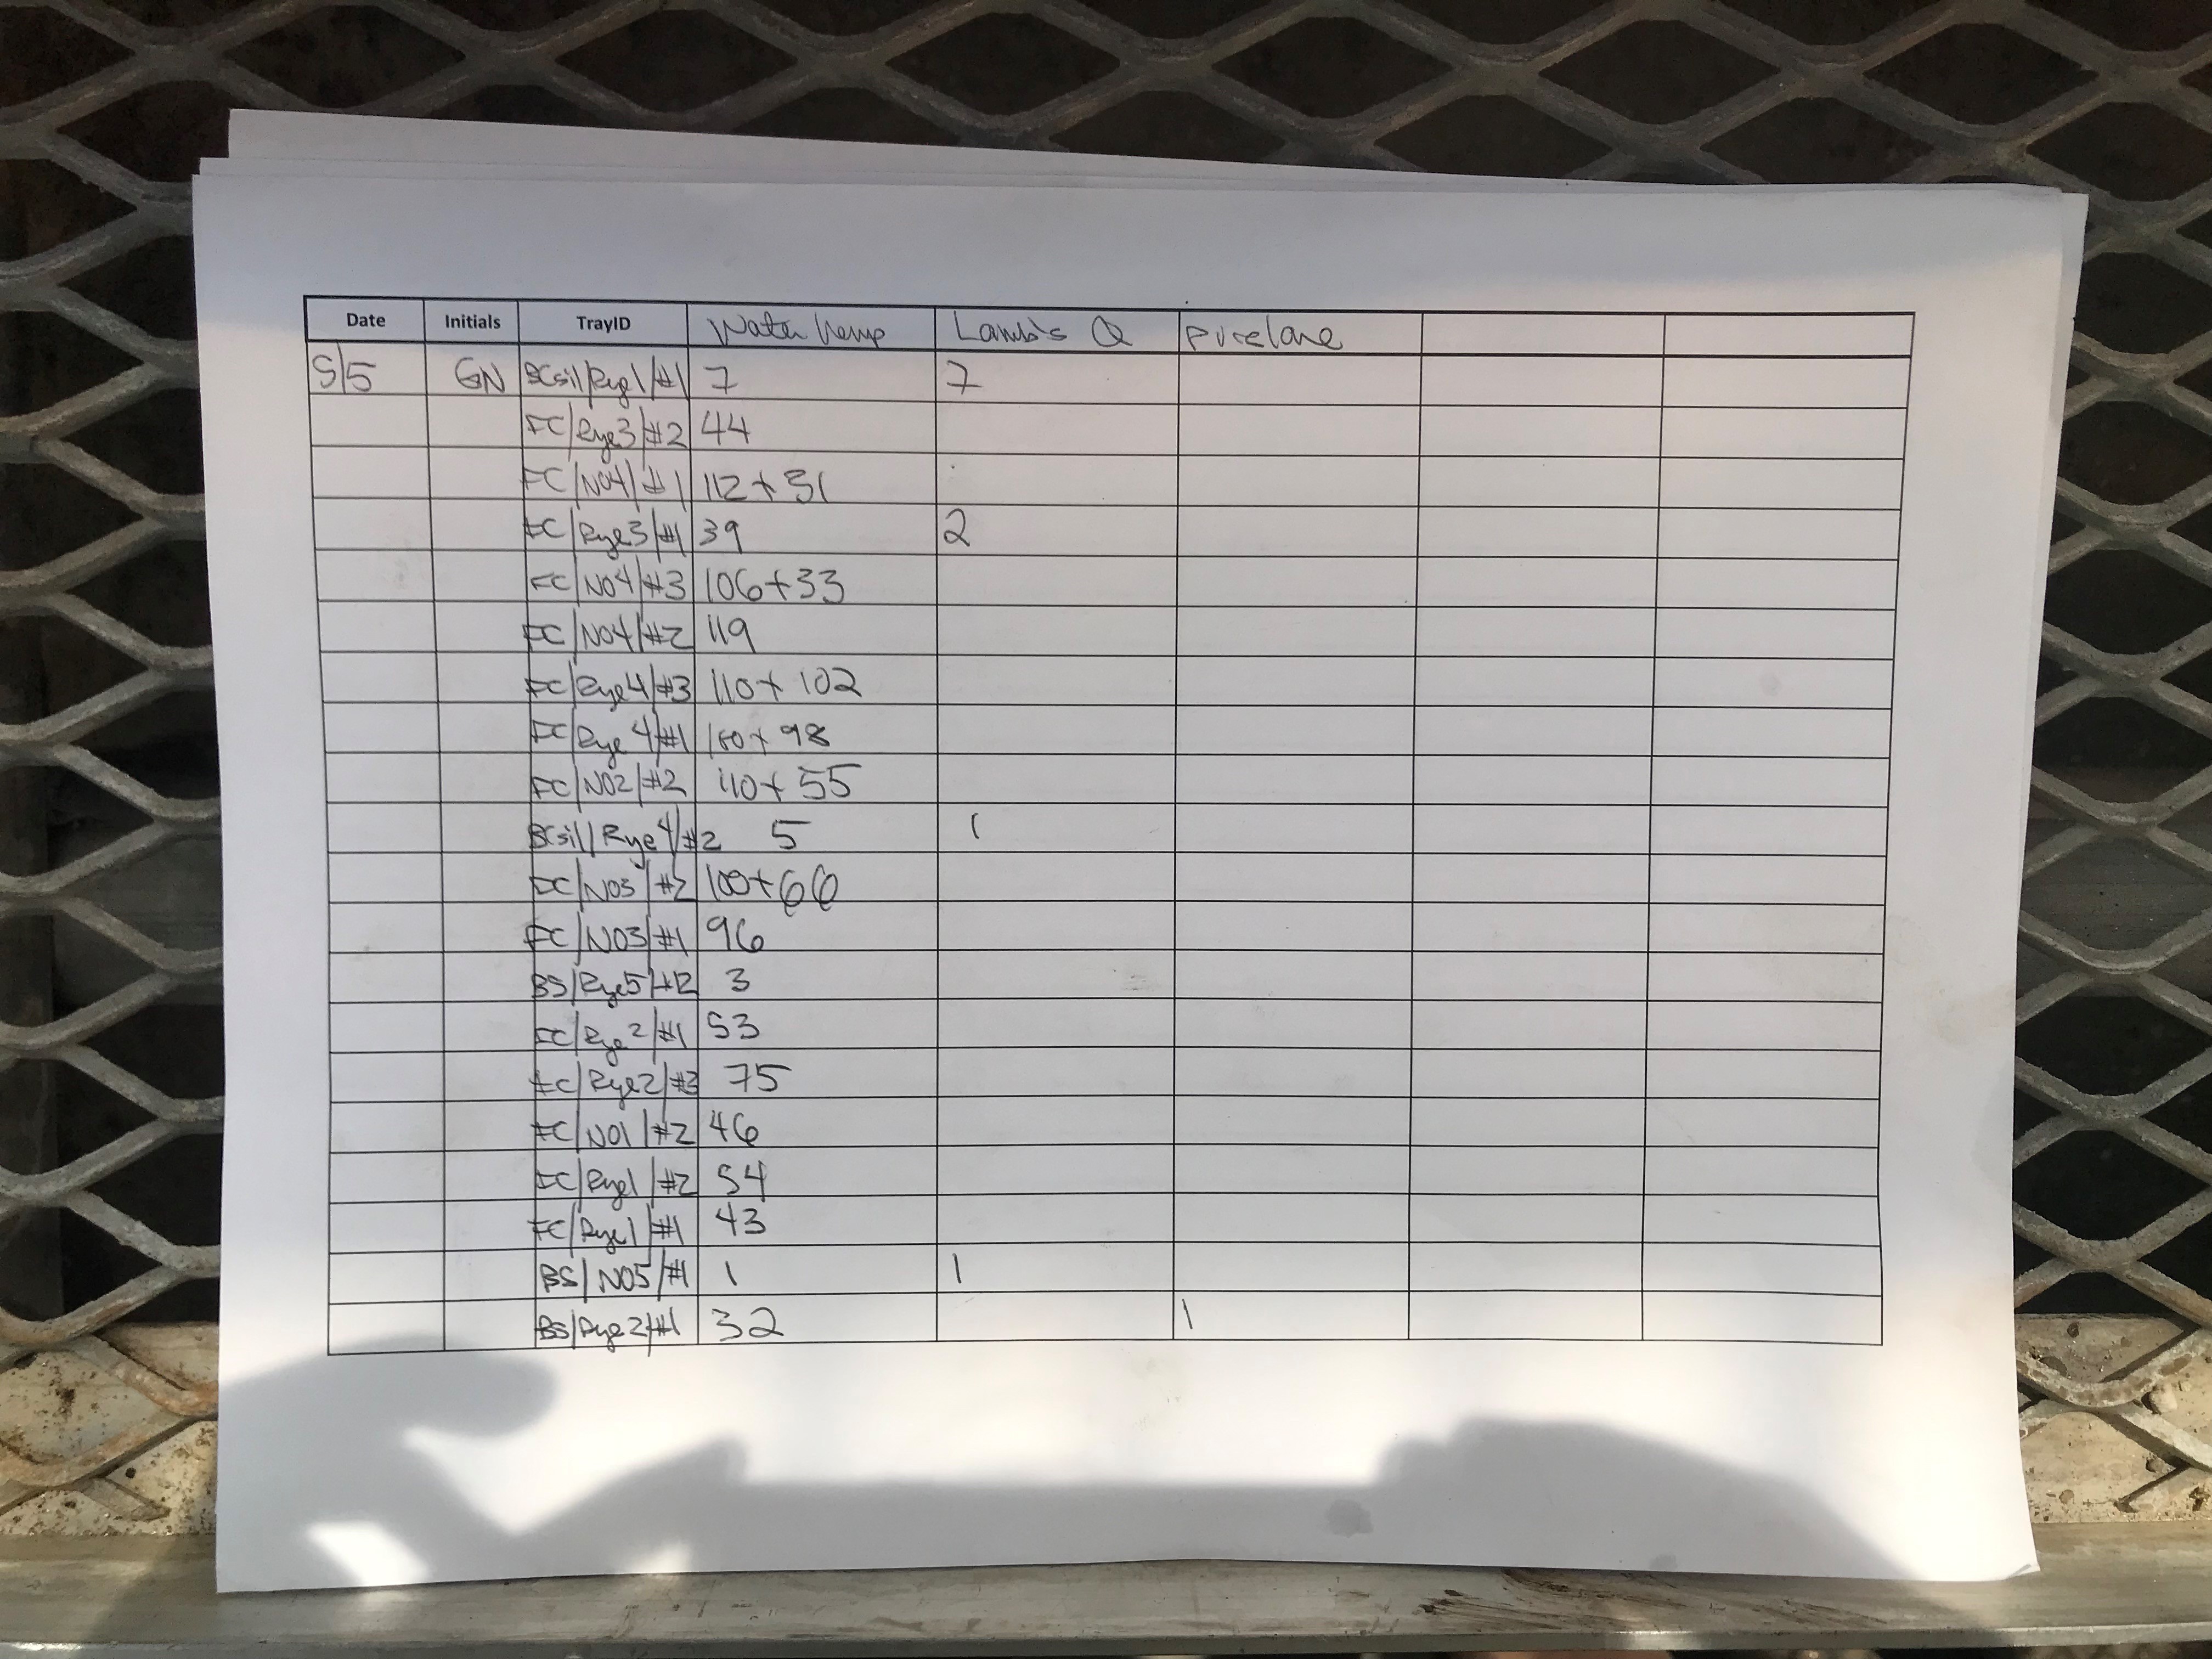 Date Initials TrayID Water hemp Lamb's Q purelane
5/5 GN BCsil/Rye1/#1 7 7
FC/Rye3/#2 44
FC/NO4/#1 112+31
FC/Rye3/#1 39 2
FC/NO4/#3 106+33
FC/NO4/#2 119
FC/Rye4/#3 110+ 102
FC/Rye4/#1 + 98
FC/NO2/#2 110+ 55
BCsil/Rye4/#2 5 1
FC/NO3/#2 100+66
FC/NO3/#1 96
BS/Rye5/#2 3
FC/Rye2/#1 53
FC/Rye2/#3 75
FC/NO1/#2 46
FC/Rye1/#2 54
FC/Rye1/#1 43
BS/NO5/#1 1 1
BS/Rye2/#1 32 1